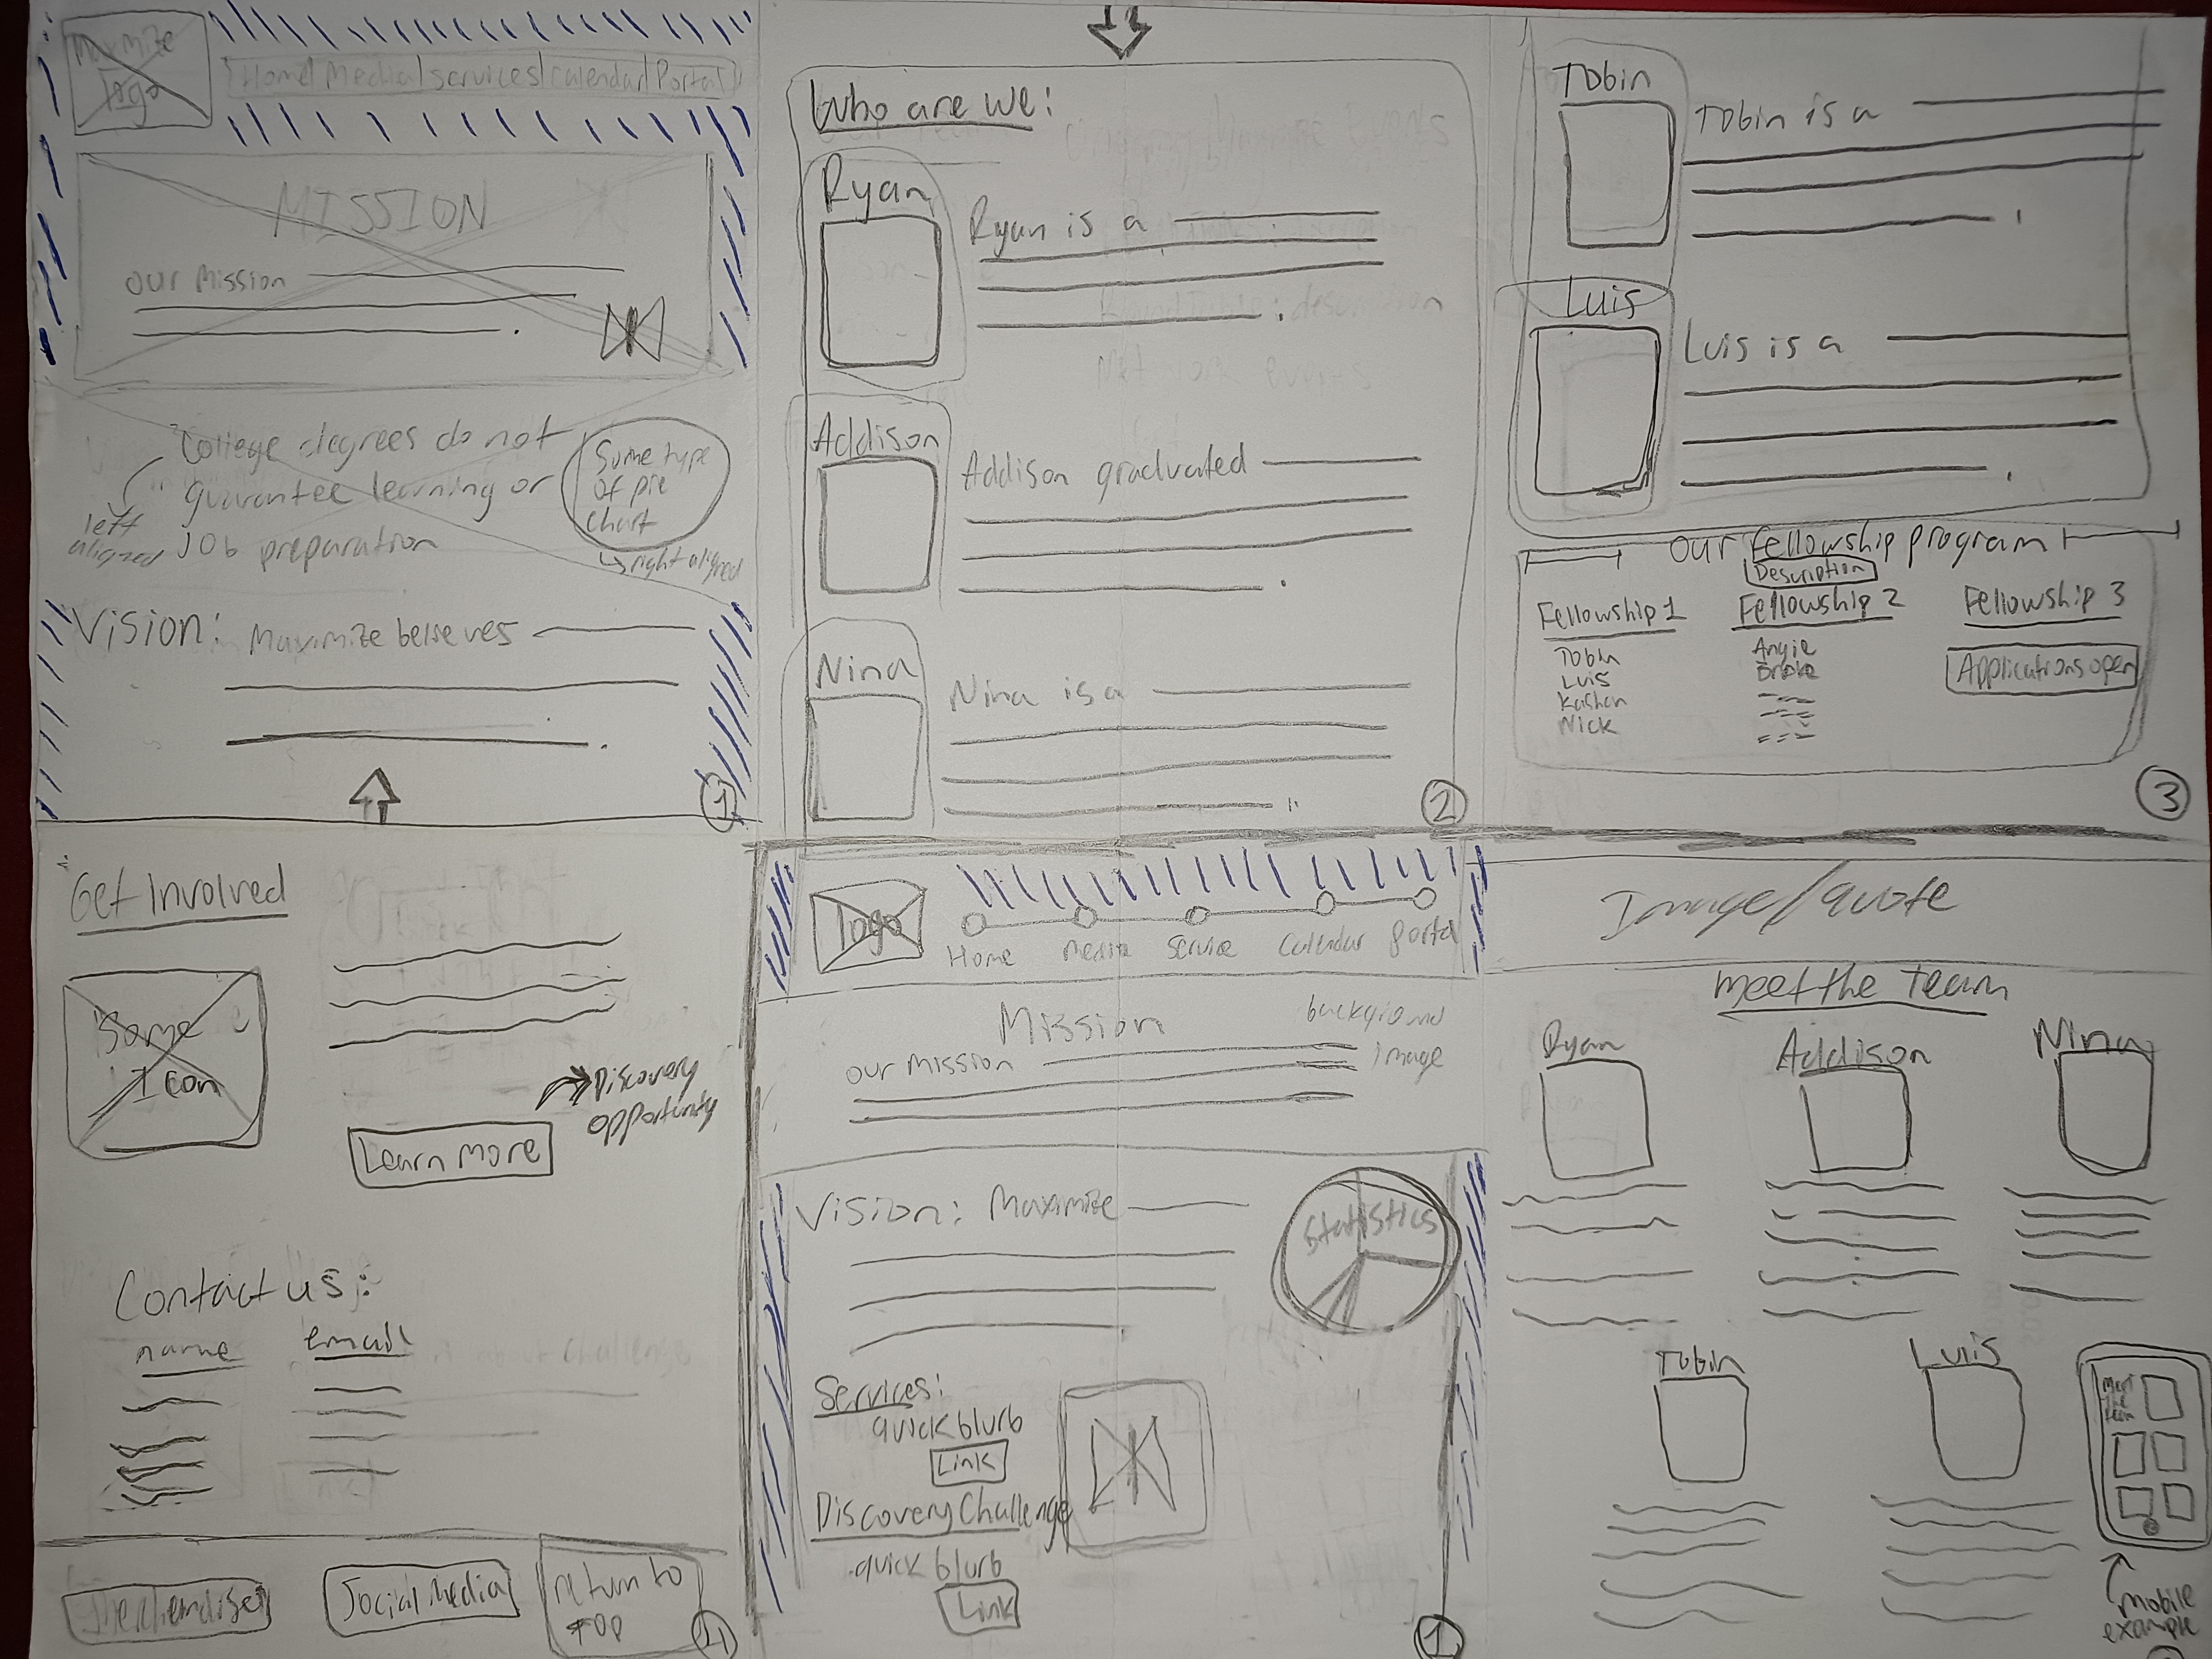 Maximize
logo
Home | Media | services | calendar | Portal
MISSION
our Mission
College degrees do not
guarantee learning or
Job preparation
left
aligned
Some type
of pie
chart
right aligned
Vision: Maximize believes
1
Who are we:
Ryan
Ryan is a
Addison
Addison graduated
Nina
Nina is a
2
Tobin
Tobin is a
Luis
Luis is a
our fellowship program
Description
Fellowship 1
Tobin
Luis
Kashan
Nick
Fellowship 2
Angie
Drake
Fellowship 3
Applications open
3
Get Involved
Some
Icon
Learn More
Discovery
opportunity
Contact us:
name
email
Merchandise
Social Media
return to
top
4
logo
Home
Media
Service
Calendar
portal
Mission
background
image
our mission
Vision: Maximize
Statistics
Services:
quick blurb
Link
Discovery Challenge
quick blurb
Link
1
Image/quote
meet the Team
Ryan
Addison
Nina
Tobin
Luis
Meet
the
team
mobile
example